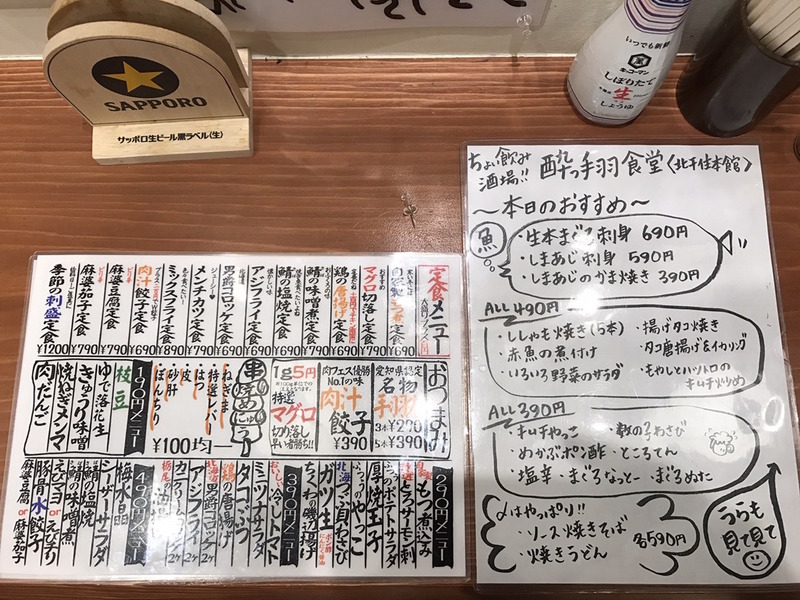 SAPPORO
サッポロ生ビール黒ラベル(生)
いつでも新鮮
キッコーマン
しぼりたて
生
しょうゆ
ちょい飲み
酒場!!
酔っ手羽食堂〈北千住本館〉
〜本日のおすすめ〜
魚
・生本まぐろ刺身 690円
・しまあじ刺身 590円
・しまあじのかま焼き 390円
ALL490円
・ししゃも焼き(5本)
・赤魚の煮付け
・いろいろ野菜のサラダ
・揚げタコ焼き
・タコ唐揚げ&イカリング
・もやしとハツトロの
キムチ炒め
ALL390円
・キムチやっこ
・数の子わさび
・めかぶポン酢
・ところてん
・塩辛
・まぐろなっとー
・まぐろぬた
〆はやっぱり!!
・ソース焼きそば
・焼きうどん
各590円
うらも
見て見て
定食メニュー
マグロ切落し定食 ¥790
鶏の唐揚げ定食 ¥690
鯖の味噌煮定食 ¥690
鯖の塩焼定食 ¥690
アジフライ定食 ¥790
男爵コロッケ定食 ¥690
メンチカツ定食 ¥790
ミックスフライ定食 ¥890
肉汁餃子定食 ¥690
麻婆豆腐定食 ¥790
麻婆茄子定食 ¥790
季節の刺盛定食 ¥1200
おつまみ
愛知県認定
名物
手羽
3本¥270
5本¥390
肉フェス優勝
No.1の味
肉汁餃子
¥390
1g5円
特選
マグロ
切り落し
早い者勝ち!!
串焼きメニュー
ねぎま
特選レバー
はつ
皮
砂肝
ぼんちり
¥100均一
190円メニュー
枝豆
ゆで落花生
きゅうり味噌
焼ねぎメンマ
肉だんご
290円メニュー
もつ煮込み
とろサーモン刺
ポテトサラダ
厚焼玉子
やっこ
ちくわの磯辺揚げ
390円メニュー
ガツ生
冷しトマト
ミニツナサラダ
タコぶつ
鶏の唐揚げ
男爵コロッケ2ヶ
アジフライ2ヶ
カニクリームコロッケ2ヶ
栃尾の油揚
490円メニュー
梅水晶
シーザーサラダ
鯖の塩焼
鯖の味噌煮
えびマヨorえびチリ
豚骨水餃子
麻婆豆腐or麻婆茄子